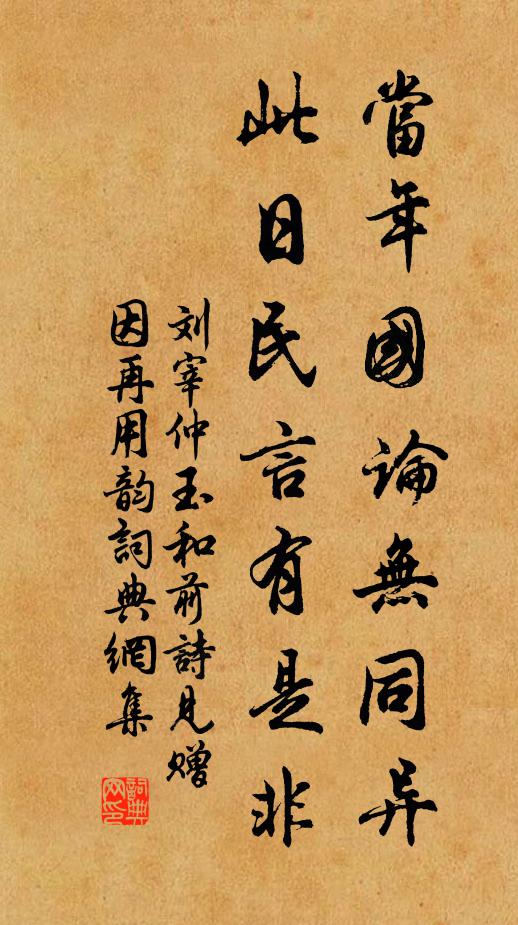 當年國論無同异
此日民言有是非
刘宰仲玉和前詩見赠
因再用韵詞典網集
詞典
网印